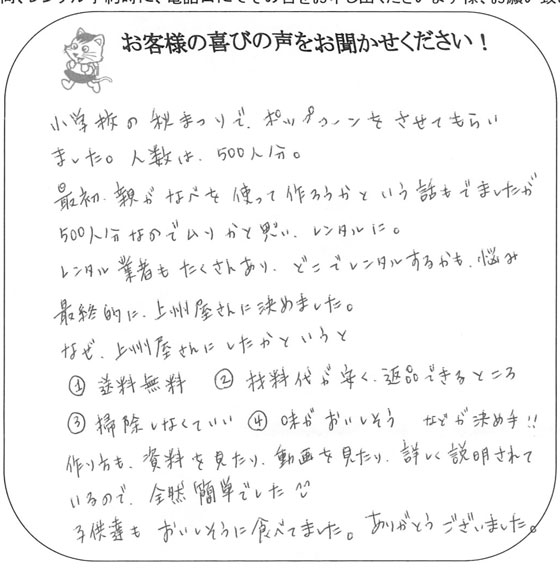 お客様の喜びの声をお聞かせください！
小学校の秋まつりで、ポップコーンをさせてもらい
ました。人数は、500人分。
最初、親がなべを使って作ろうかという話もでましたが
500人分なのでムリかと思い、レンタルに。
レンタル業者もたくさんあり、どこでレンタルするかも、悩み
最終的に、上州屋さんに決めました。
なぜ、上州屋さんにしたかというと
① 送料無料 ② 材料代が安く、返品できるところ
③ 掃除しなくていい ④ 味がおいしそう などが決め手!!
作り方も、資料を見たり、動画を見たり、詳しく説明されて
いるので、全然簡単でした
子供達も おいしそうに食べてました。ありがとうございました。